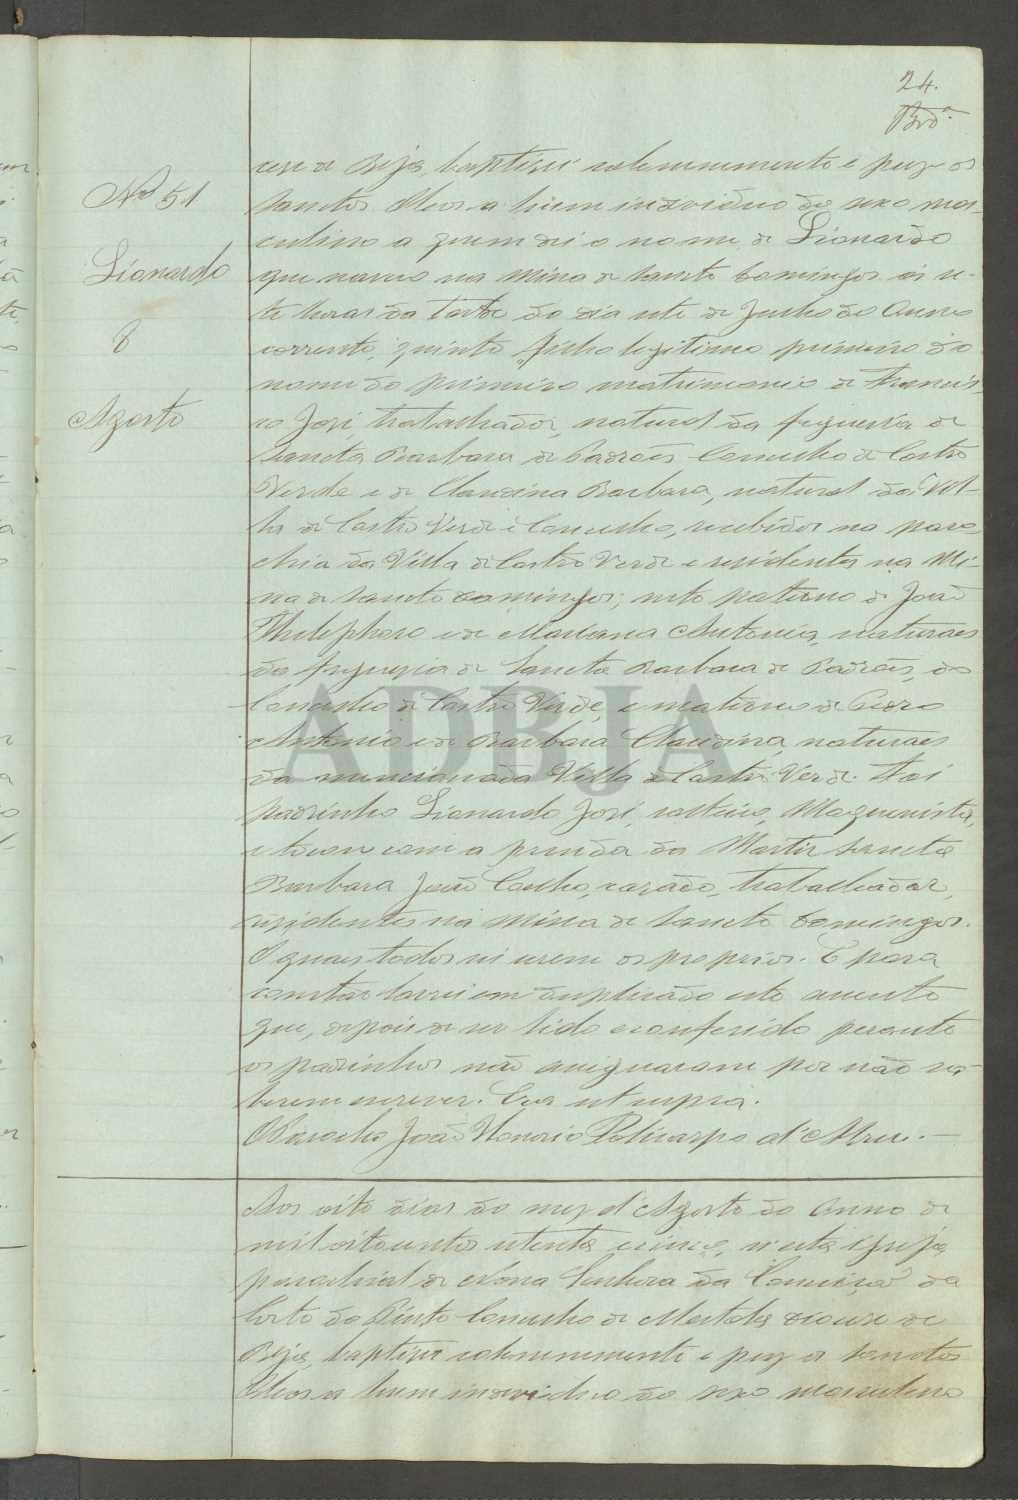 24.
Nº 51
Lionardo
8
Agosto
cese de Beja, baptisei solemnemente e puz os
Sanctos Oleos a hum individuo do sexo mas-
culino a quem dei o nome de Lionardo
que nasceu na Mina de Sancto Domingos ás se-
te horas da tarde do dia sete de Junho do Anno
corrente, quinto filho legitimo primeiro do
nome do primeiro matrimonio de Francis-
co José, trabalhador, natural da freguesia de
Sancta Barbara de Padrões Concelho de Castro
Verde e de Claudina Barbara, natural da Vil-
la de Castro Verde e Concelho, recebidos na paro-
chia da Villa de Castro Verde e residentes na Mi-
na de Sancto Domingos; neto paterno de João
Thelephoro e de Mariana Antonia, naturaes
da freguesia de Sancta Barbara de Padrões, do
Concelho de Castro Verde, e materno de Pedro
Antonio e de Barbara Claudina, naturaes
da mencionada Villa de Castro Verde. Foi
padrinho Lionardo José, solteiro, Maquinista,
e tocou com a prenda da Martir Sancta
Barbara João Coelho, casado, trabalhador,
residentes na Mina de Sancto Domingos.
Os quaes todos sei serem os proprios. E para
constar lavrei em duplicado este assento
que, depois de ser lido e conferido perante
os padrinhos não assignaram por não sa-
berem escrever. Era ut supra.
O Parocho João Honorio Policarpo d'Abreu.
Aos oito dias do mez d'Agosto do Anno de
mil oitocentos setenta e cinco, n'esta igreja
parochial de Nossa Senhora da Conceição da
Corte do Pinto Concelho de Mertola diocese de
Beja, baptisei solemnemente e puz os Sanctos
Oleos a hum individuo do sexo masculino
ADBJA